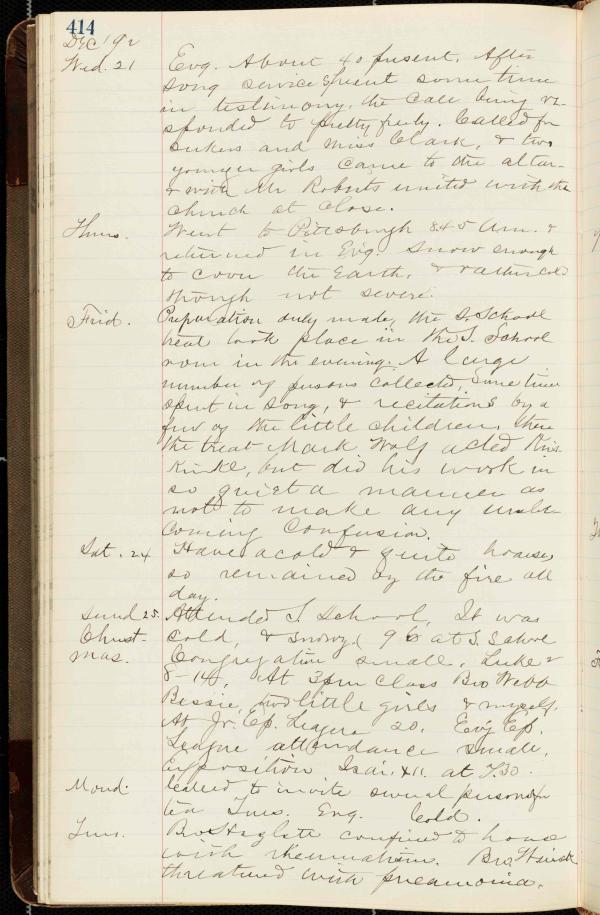 414
Dec '92
Wed. 21 Evg. About 40 present. After
song service spent some time
in testimony, the call being re-
sponded to pretty freely. Called for
seekers and Miss Clark, & two
younger girls came to the alter.
& with Mr Roberts united with the
church at close.
Thurs. Went to Pittsburgh 8.45 Am. &
returned in Evg. Snow enough
to cover the Earth, & rather cold
though not severe.
Frid. Preparation duly made, the S. School
treat took place in the S. School
room in the evening. A large
number of persons collected, some time
spent in song, & recitations by a
few of the little children, then
the treat Mark Wolf acted Kris
Kinkle, but did his work in
so quiet a manner as
not to make any unbe
coming confusion.
Sat. 24 Have a cold & quite hoarse,
so remained by the fire all
day.
Sund 25. Attended S. School, It was
Christ- cold, & snowy. 96 at S. School
mas. Congregation small. Luke 2
8-14. At 3pm Class Bro Webb
Bessie, two little girls & myself.
At Jr. Ep. League 20. Evg Ep.
League attendance small.
Exposition Isai. XII. at 7.30.
Mond. called to invite several persons for
tea Tues. Evg. Cold.
Tues. Bro confined to house
with rheumatism. Bro.
threatened with pneamonia.